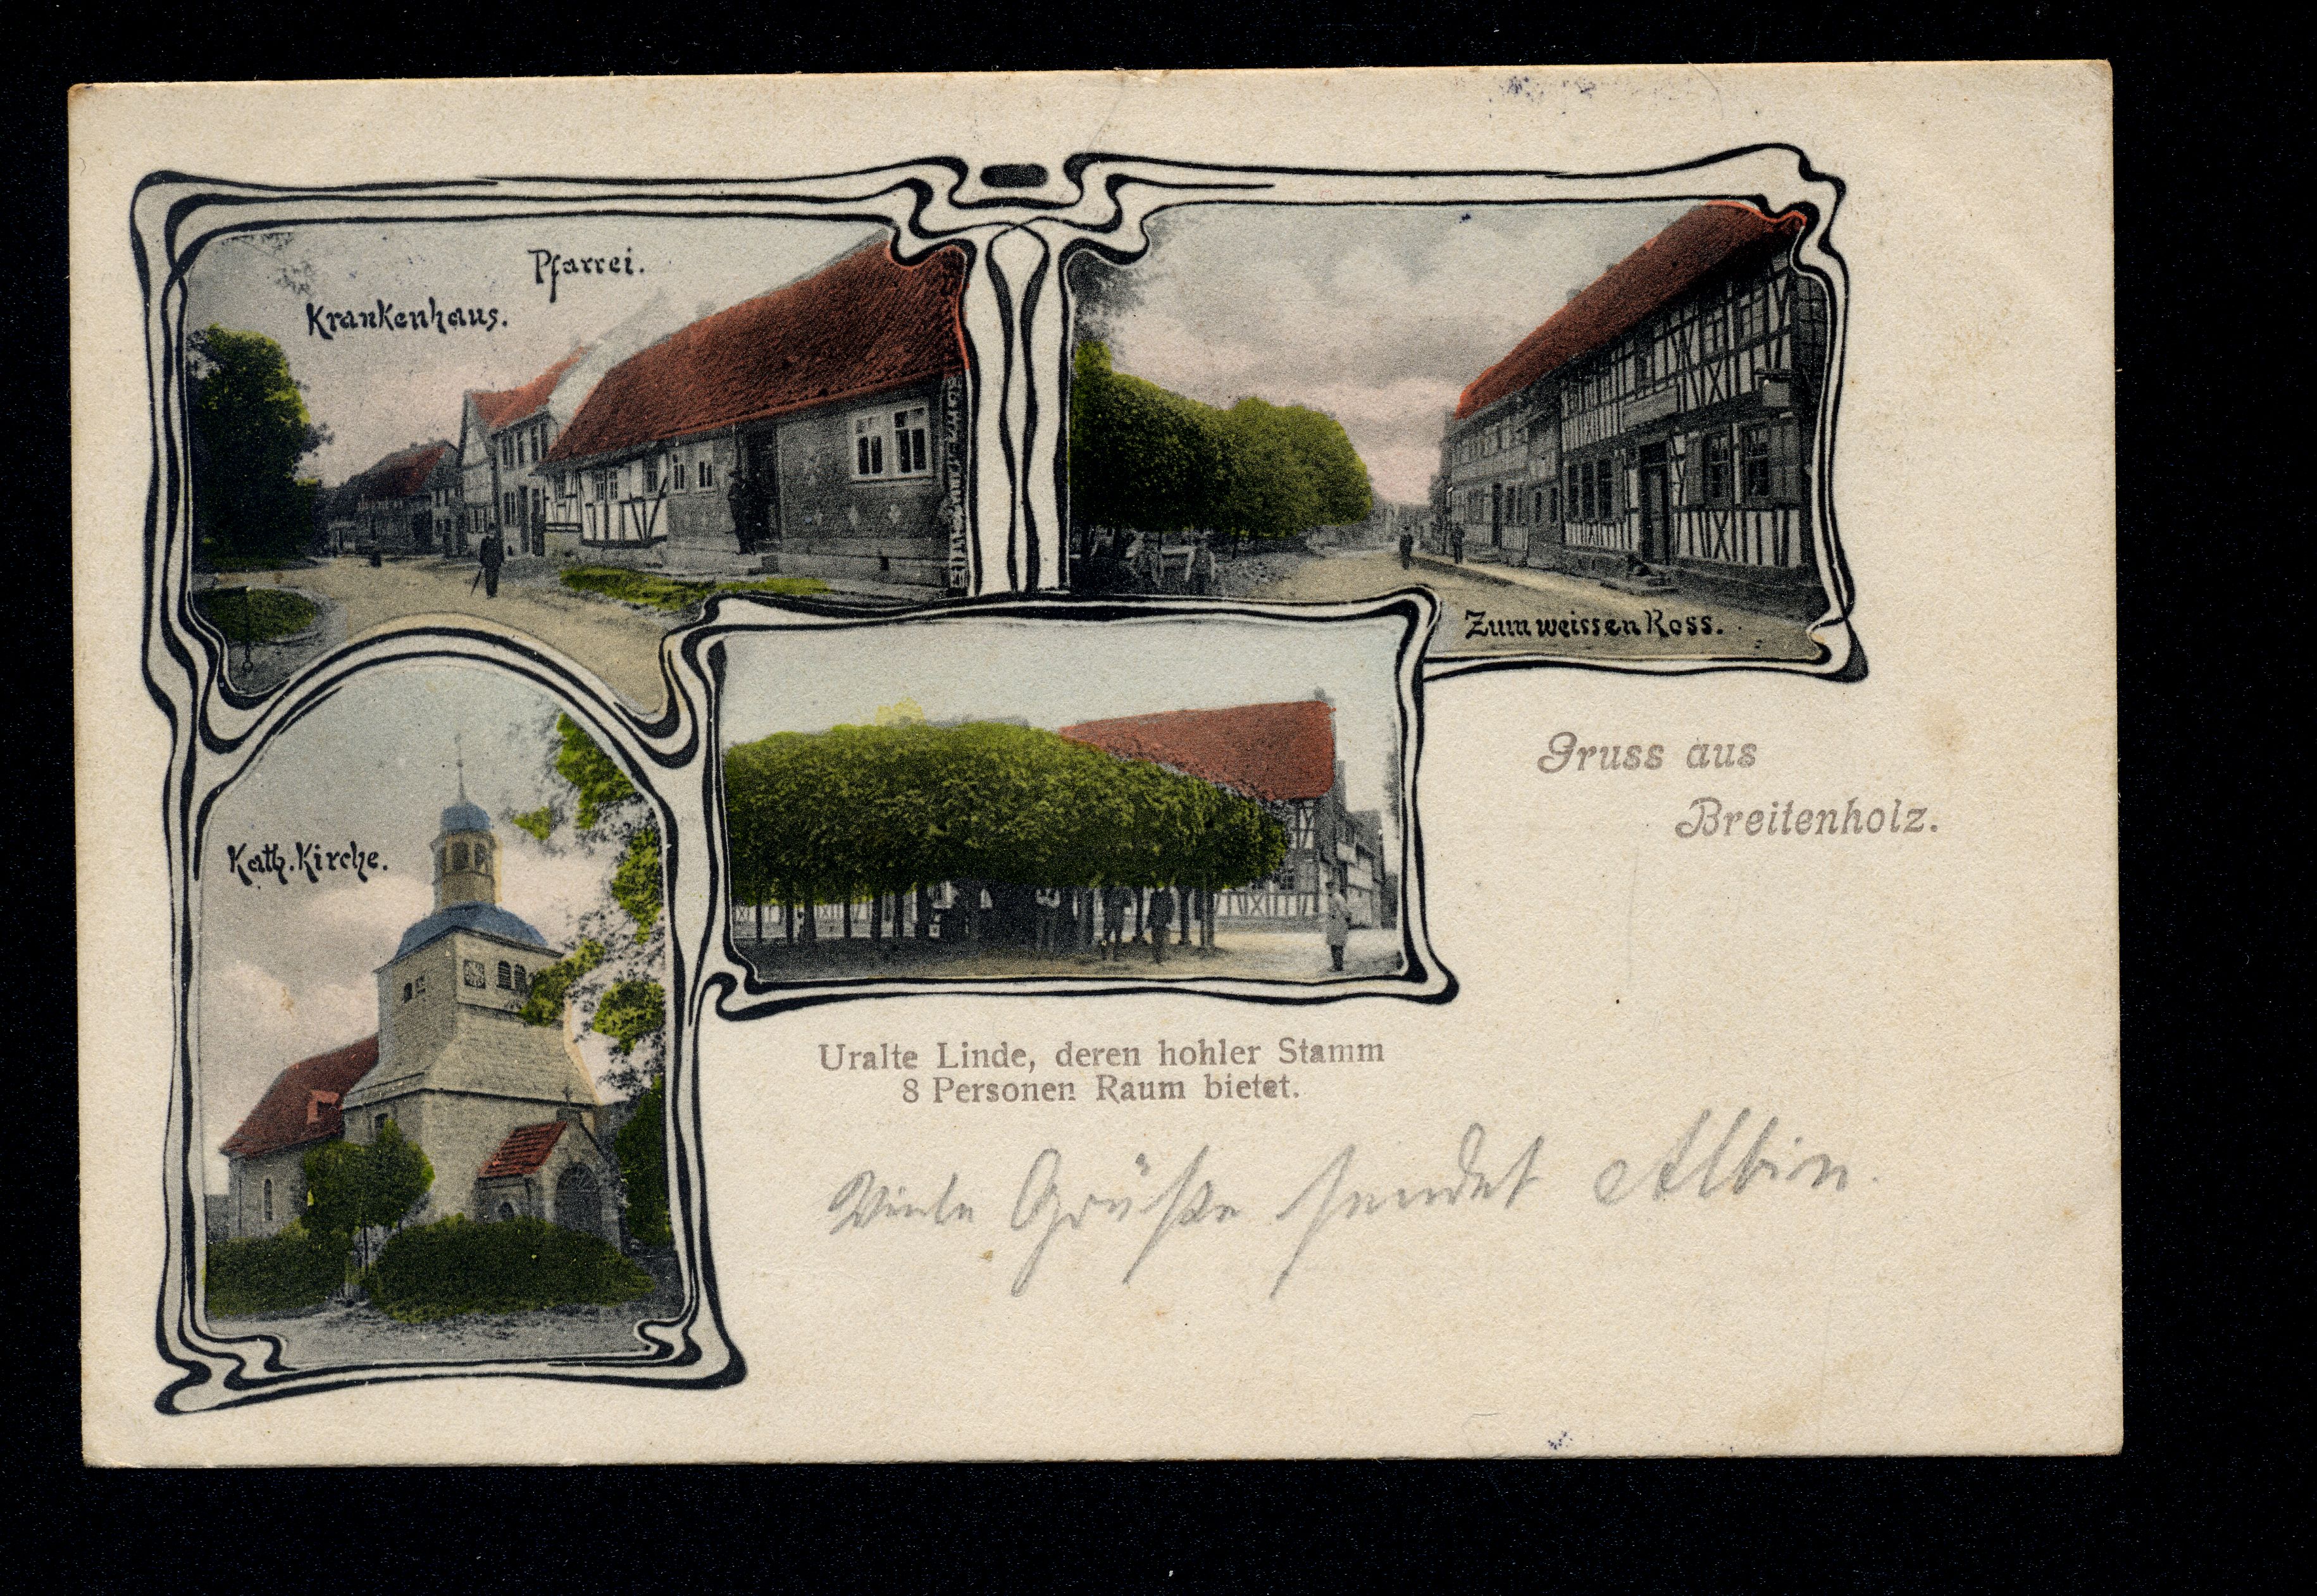 Pfarrei.
Krankenhaus.
Zum weissen Ross.
Kath. Kirche.
Gruss aus
Breitenholz.
Uralte Linde, deren hohler Stamm
8 Personen Raum bietet.
Viele Grüße sendet Albin.